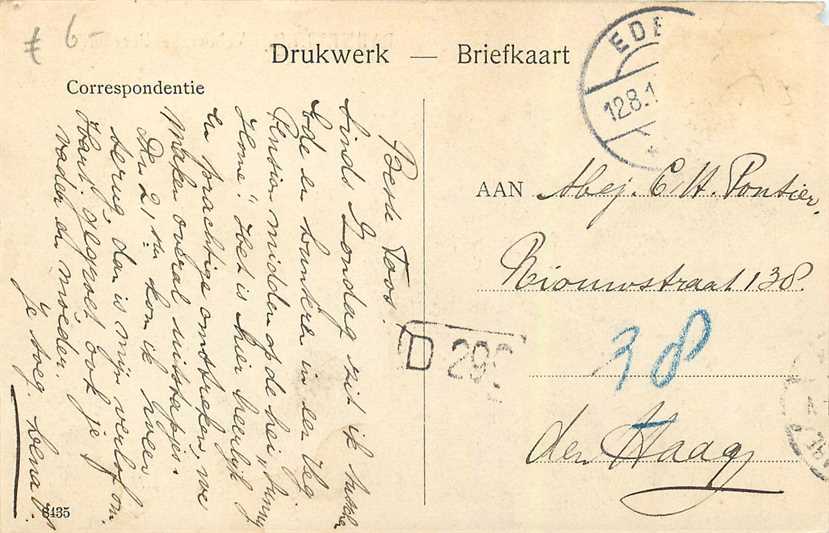 £ 6-
Drukwerk — Briefkaart
Correspondentie
Beste Toos.
Sinds Zondag zit ik tusschen
Ede en in een
Pension midden op de hei, "Sunny
Home". Het is hier heerlijk
en prachtige omstreken, we
maken overal uitstapjes.
Den 21sten kom ik weer
terug, dan is mijn verlof om.
Hart. gegroet ook je
vader en moeder.
je toeg.
EDE
12 8.1
AAN Mej. C. H. Pontier.
Nieuwstraat 138.
38
den Haag
D 29
6435